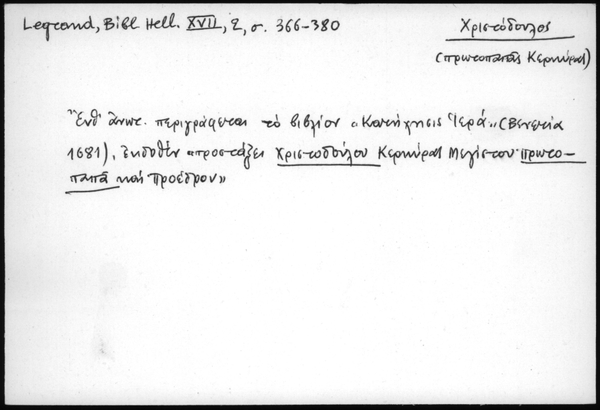 Legrand, Bibl Hell. XVII, 2, σ. 366-380
Χριστόδουλος
(πρωτοπαπᾶς Κερκύρας)
Ἔνθ' ἄνωτ. περιγράφεται τὸ βιβλίον «Κατήχησις Ἱερά» (Βενετία
1681), ἐκδοθὲν «προστάξει Χριστοδούλου Κερκύρας Μεγίστου πρωτο-
παπᾶ καὶ Προέδρου»